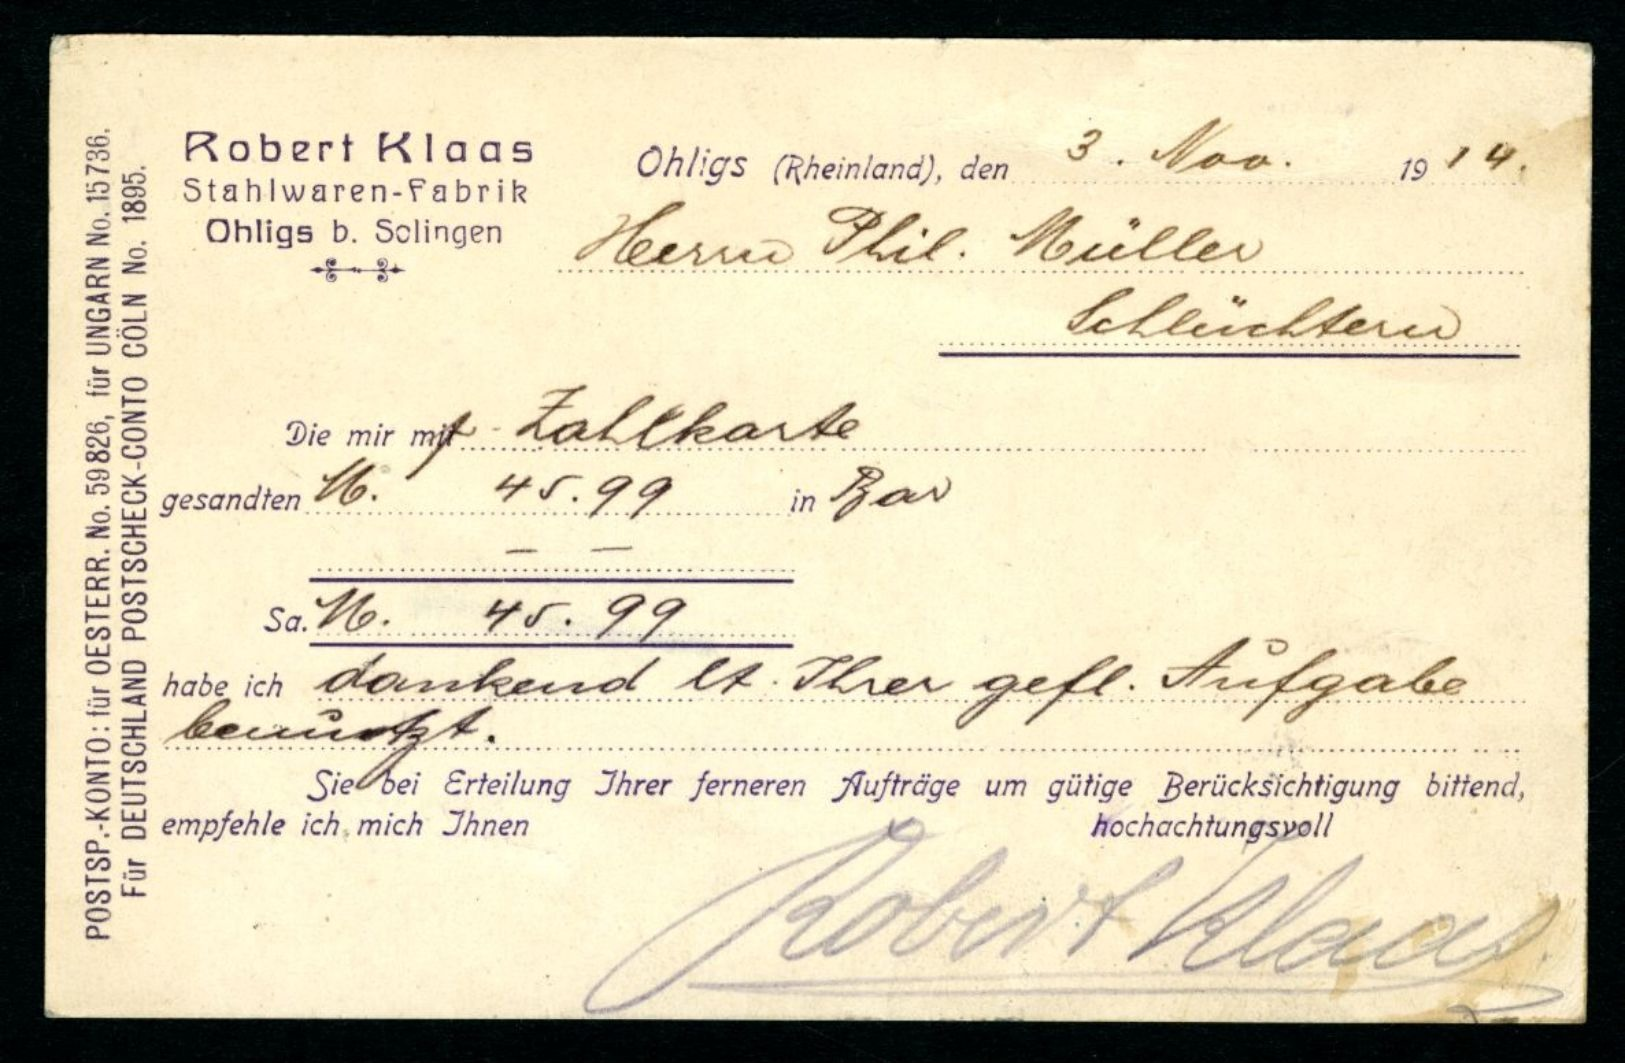 POSTSP.-KONTO: für OESTERR. No. 59826, für UNGARN No. 15736.
Für DEUTSCHLAND POSTSCHECK-CONTO CÖLN No. 1895.
Robert Klaas
Stahlwaren-Fabrik
Ohligs b. Solingen
Ohligs (Rheinland), den 3. Nov. 1914.
Herrn Phil. Müller
Schlüchtern
Die mir mit p. Zahlkarte
gesandten M. 45.99 in Bar
— —
Sa. M. 45.99
habe ich dankend lt. Ihrer gefl. Aufgabe
benutzt.
Sie bei Erteilung Ihrer ferneren Aufträge um gütige Berücksichtigung bittend,
empfehle ich mich Ihnen hochachtungsvoll
Robert Klaas.